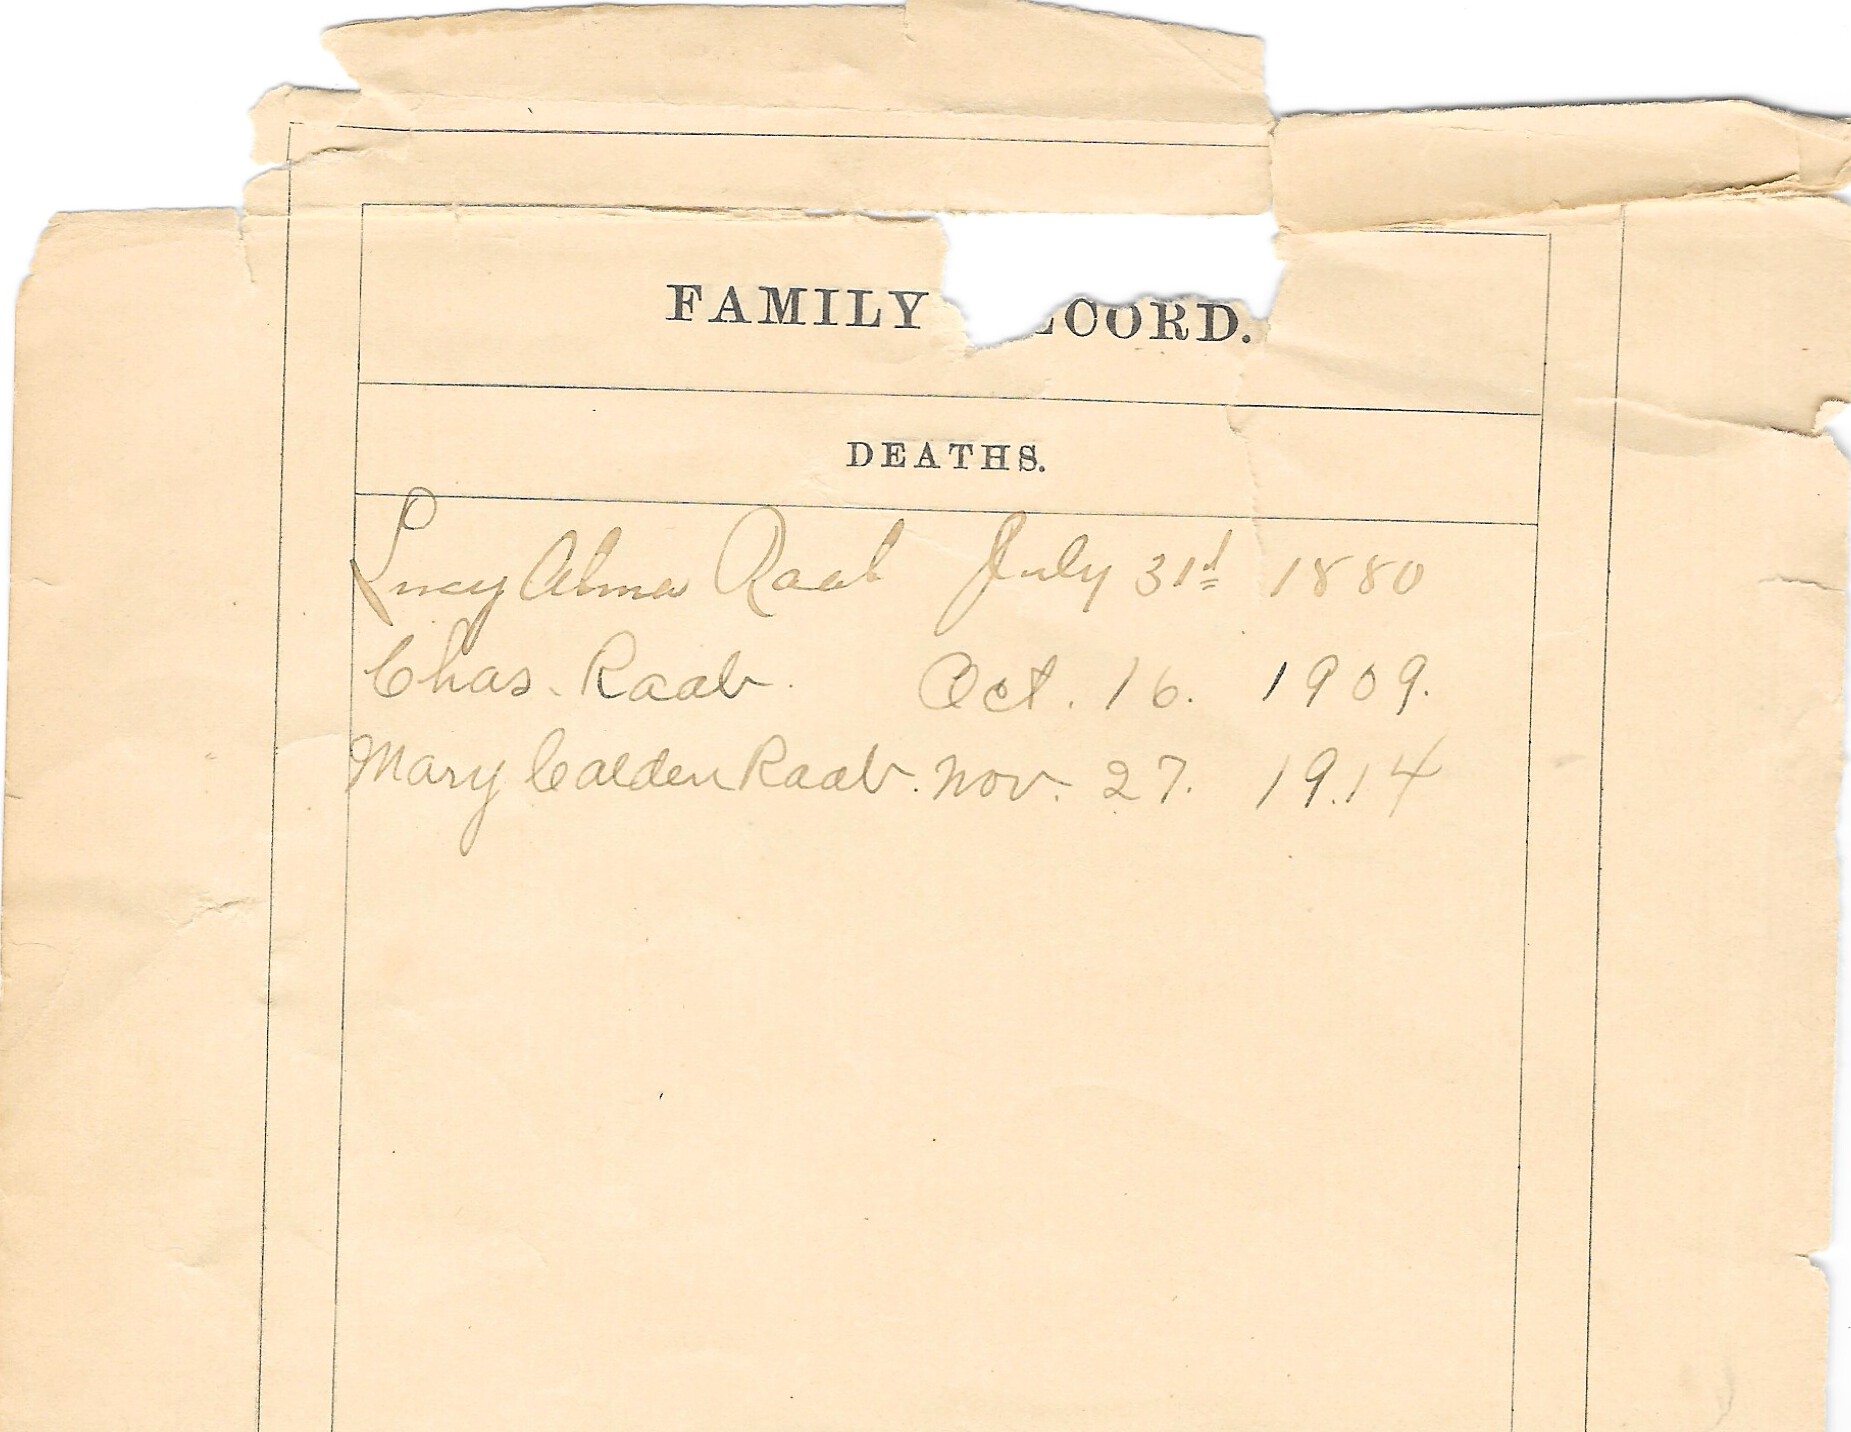 FAMILY RECORD.
DEATHS.
Lucy Alma Raab July 31st 1880
Chas. Raab. Oct. 16. 1909.
Mary Calden Raab. Nov. 27. 1914